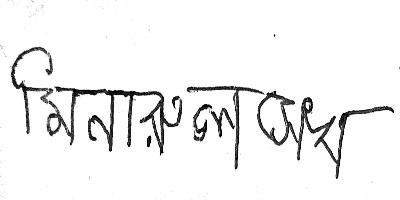 মিনারুল সেখ